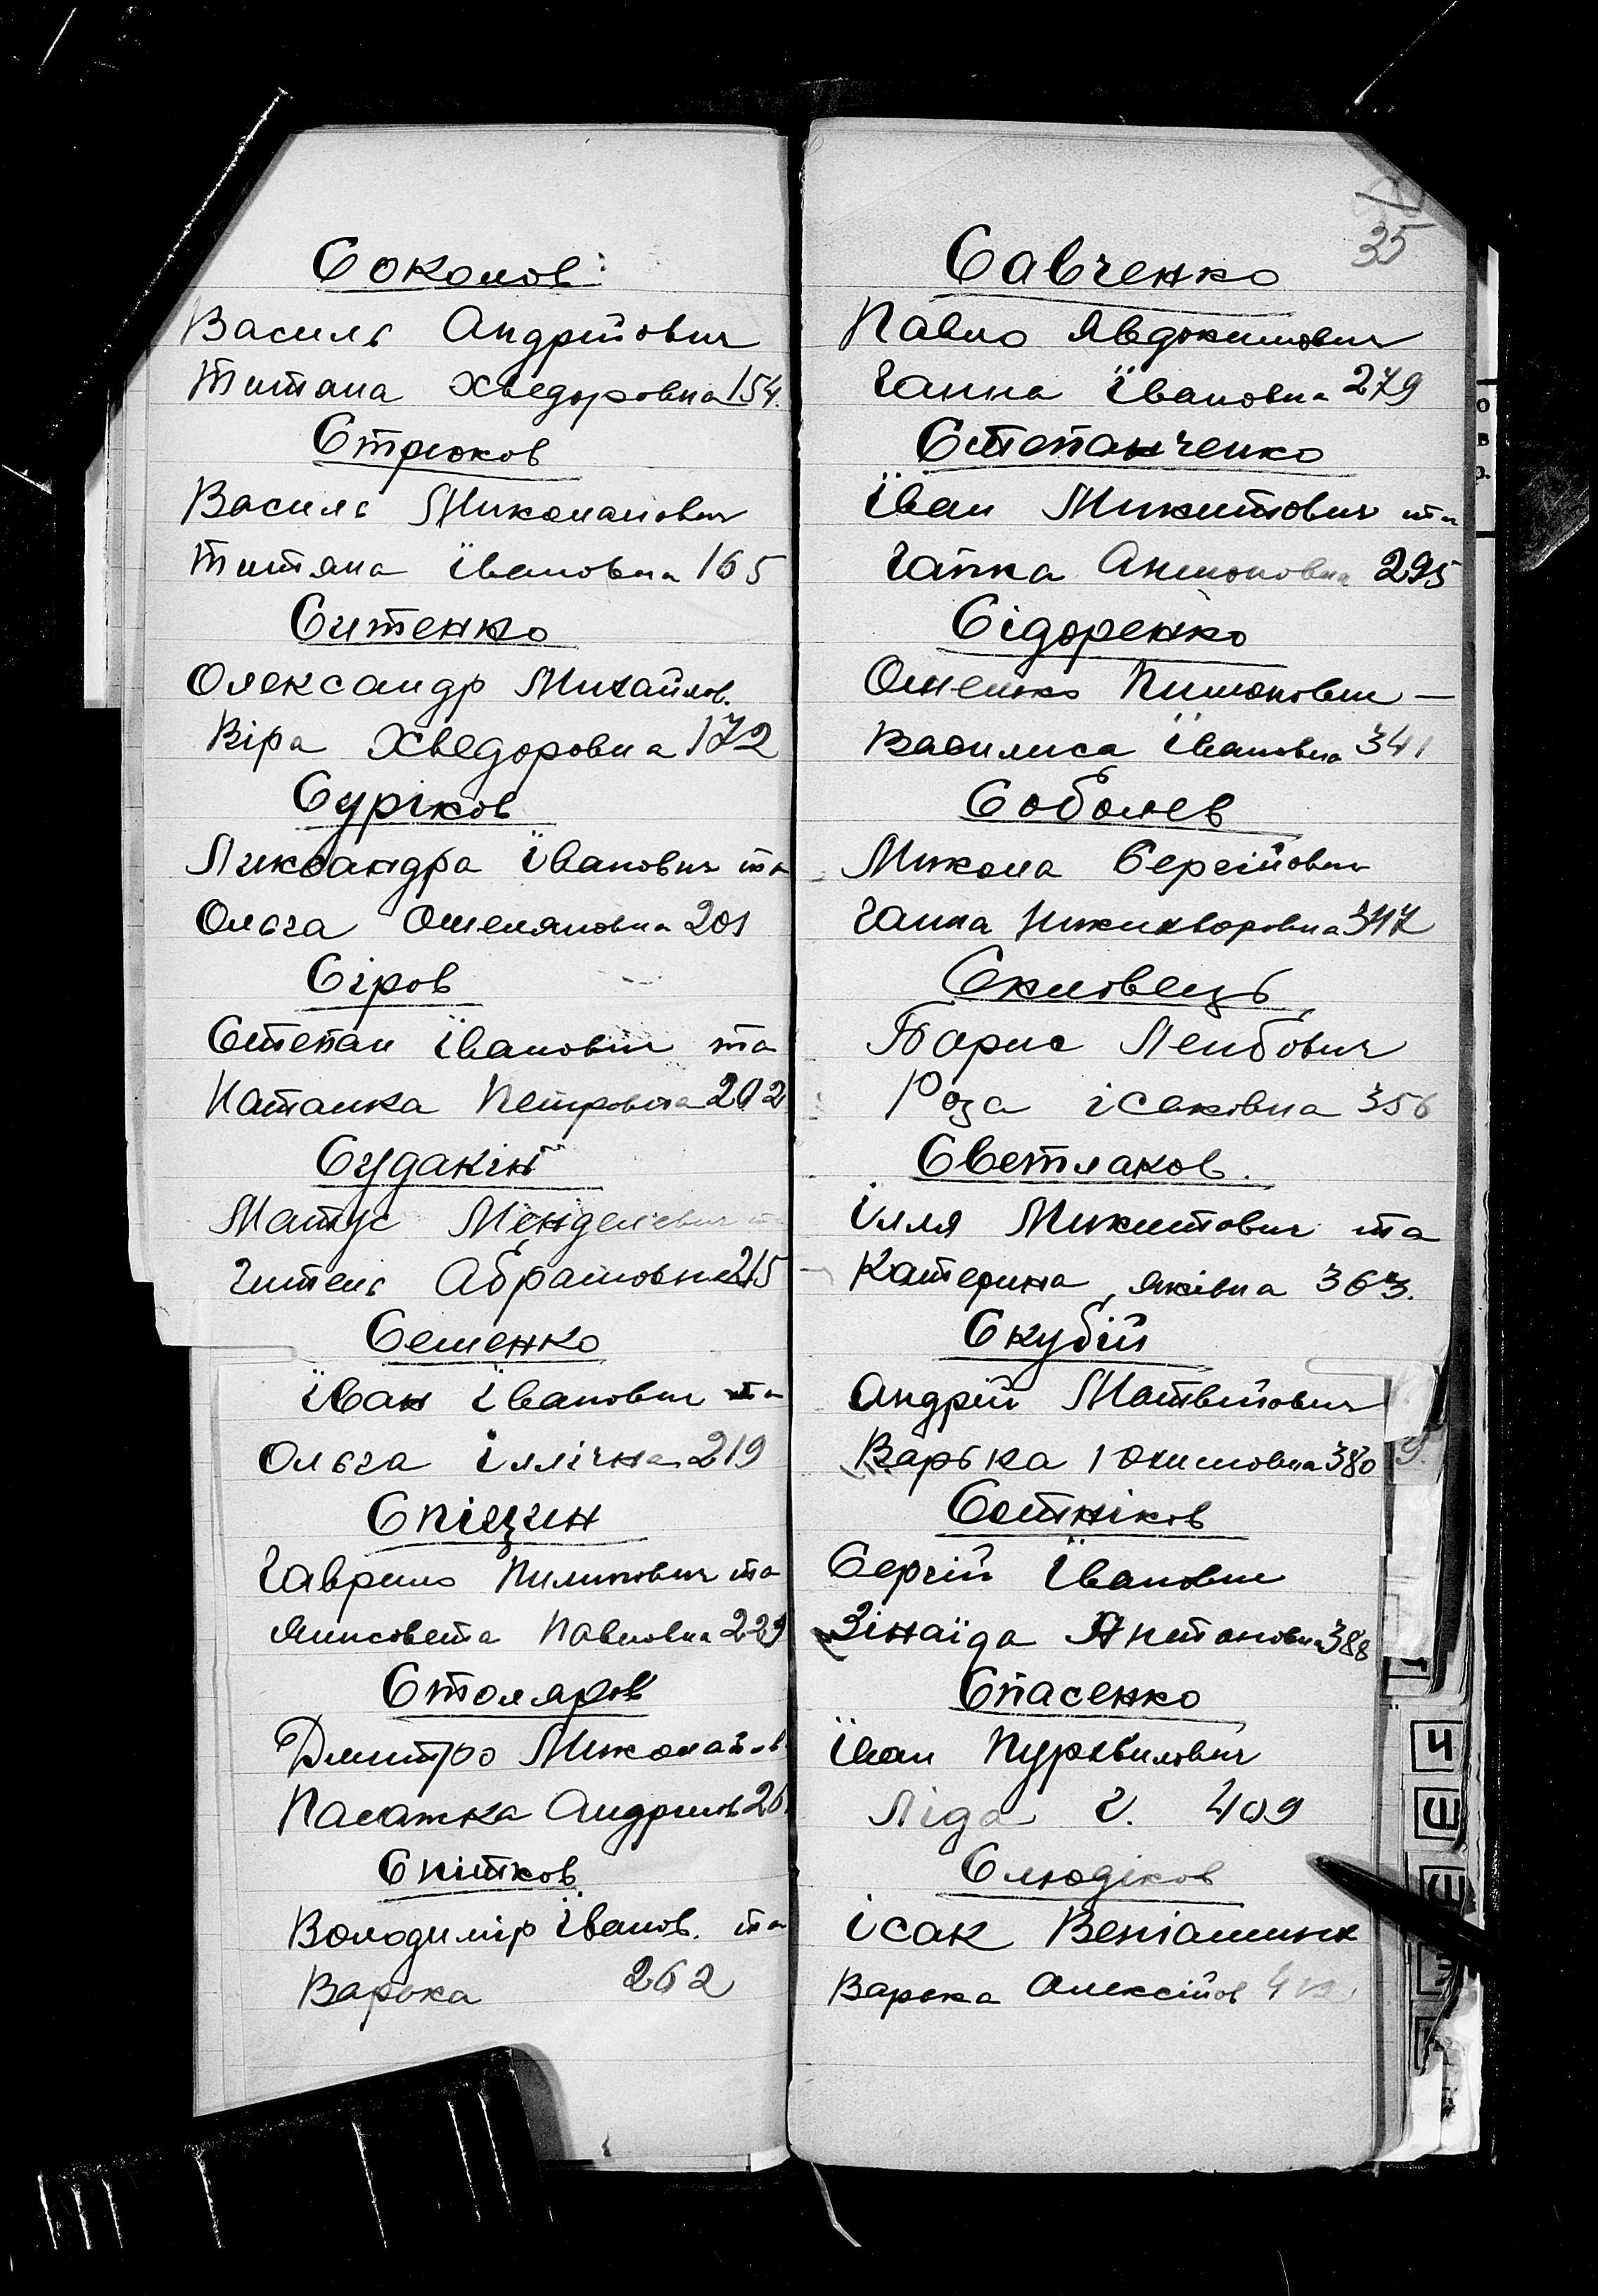 Соколов
Василь Андрійович
Титяна Хведоровна 154.
Стрюков
Василь Миколайович
Титяна Івановна 165
Ситенко
Олександр Михайлов.
Віра Хведоровна 172
Суріков
Ликсандра Іванович та
Ольга Омеляновна 201
Сіров
Степан Іванович та
Наталка Петровна 202
Судакін
Матус Менделевич
Гитель Абрамовна 215
Семенко
Іван Іванович та
Ольга Іллічна 219
Спіцин
Гаврило Пилипович та
Ялисовета Павловна 229
Столяров
Дмитро Миколайов
Палажка Андріов 26
Скітков
Володимір Іванов. та
Варька 262
35
Савченко
Павло Явдокимович
Ганна Івановна 279
Степанченко
Іван Микитович та
Гапка Антоновна 295
Сідоренко
Омелько Пимонович —
Василиса Івановна 341
Соболев
Микола Сергійович
Ганна Никихворовна 347
Скловець
Борис Лейбович
Роза ісаковна 356
Светлаков.
Ілля Микитович та
Катерина Яківна 363.
Скубій
Андрій Матвійович
Варька Юхимовна 380
Сотніков
Сергій Іванович
Зінаїда Антоновна 388
Спасенко
Іван Пурхвилович
Ліда І. 409
Слюдіков
Ісак Веніаминов
Варька Олексійов
Ч
Ш